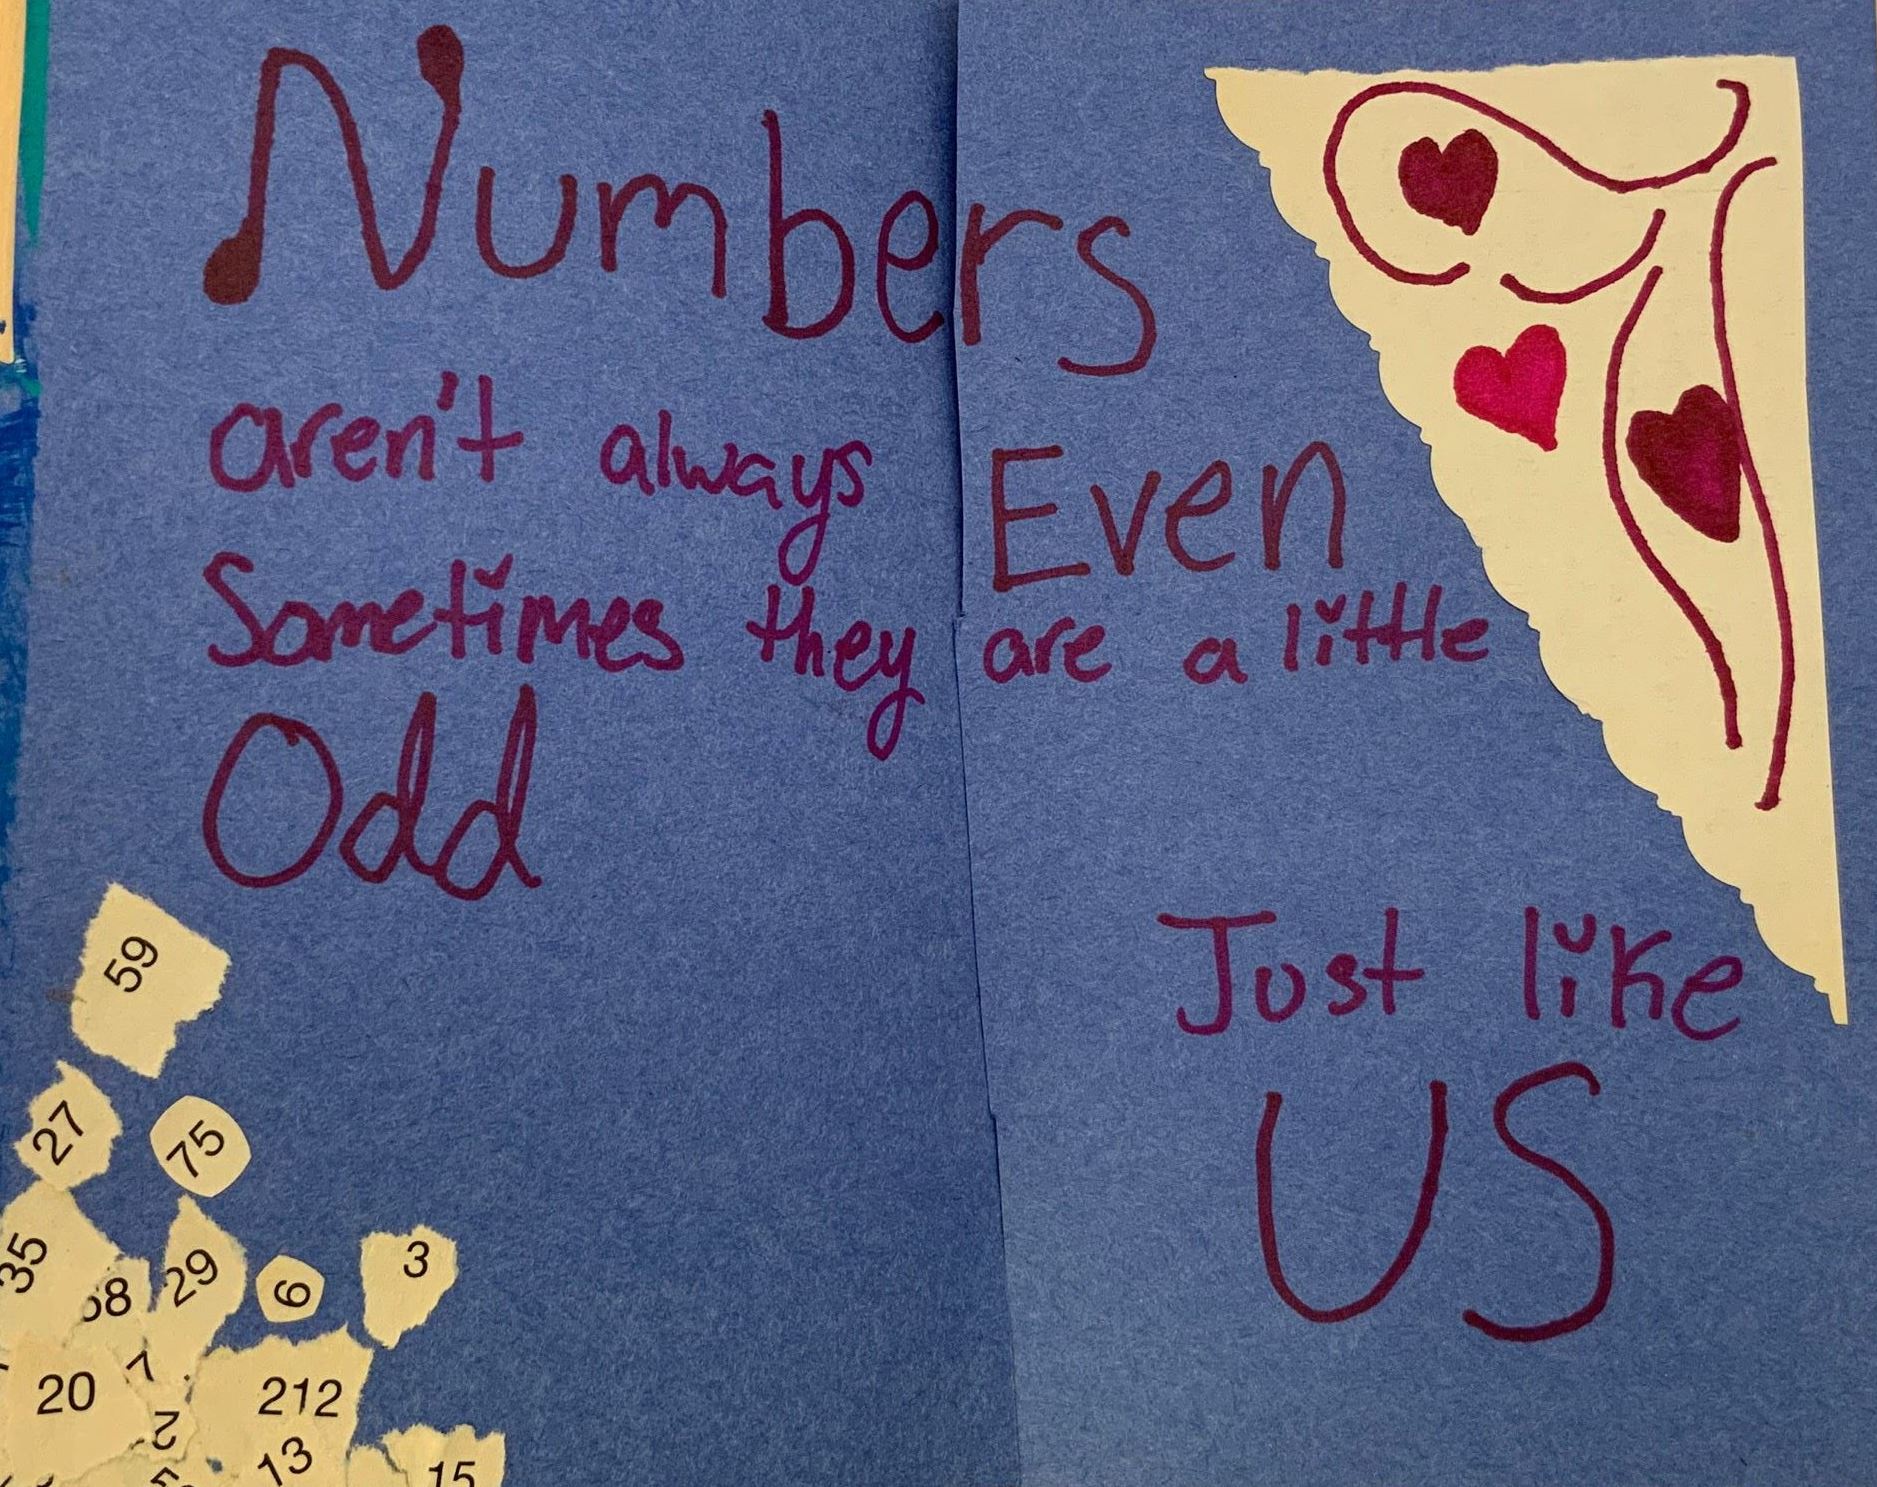 Numbers
aren't always Even
Sometimes they are a little
Odd
Just like
US
59
27
75
35
29
6
3
68
7
20
212
2
13
15